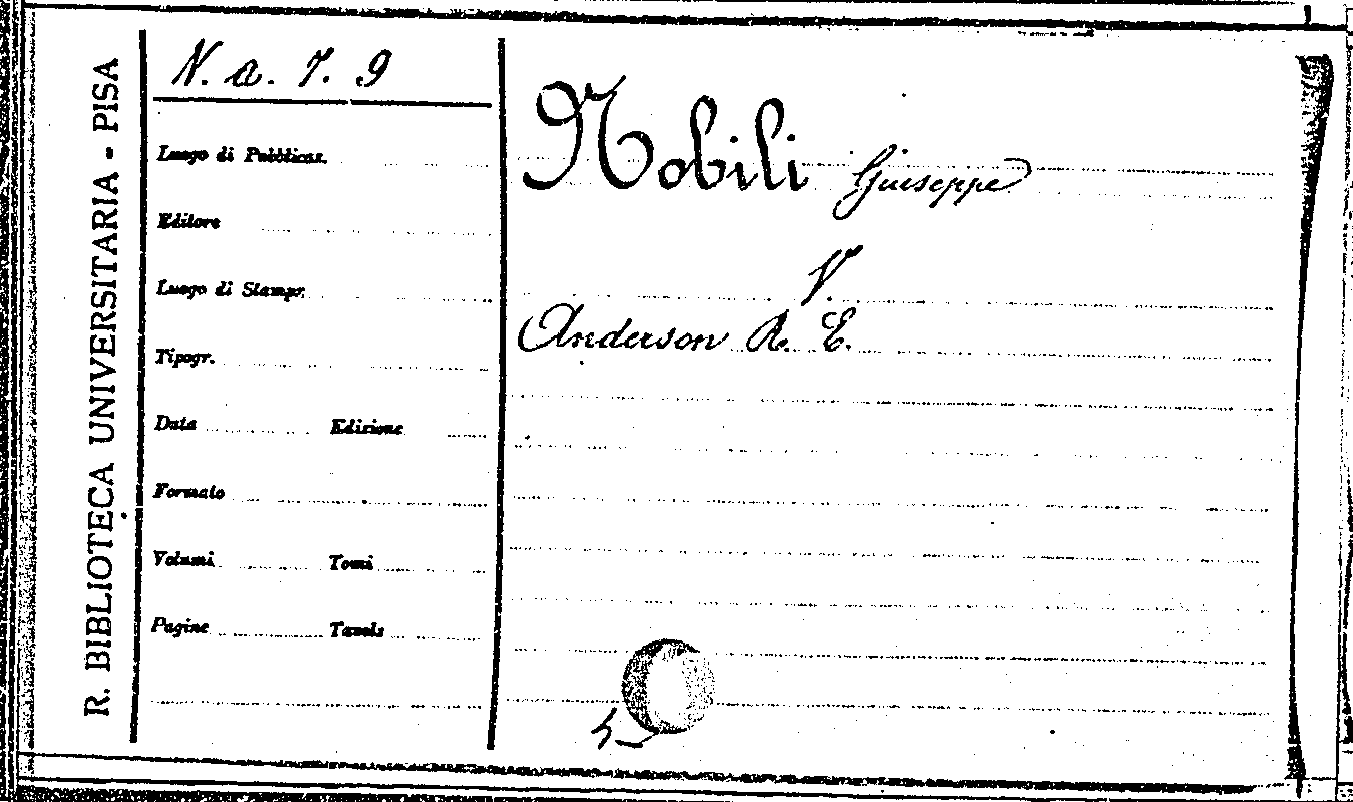 R. BIBLIOTECA UNIVERSITARIA - PISA
N. a. 7. 9
Luogo di Pubblicaz.
Editore
Luogo di Stampa
Tipogr.
Data Edizione
Formato
Volumi Tomi
Pagine Tavole
Nobili Giuseppe
V.
Anderson R. E.